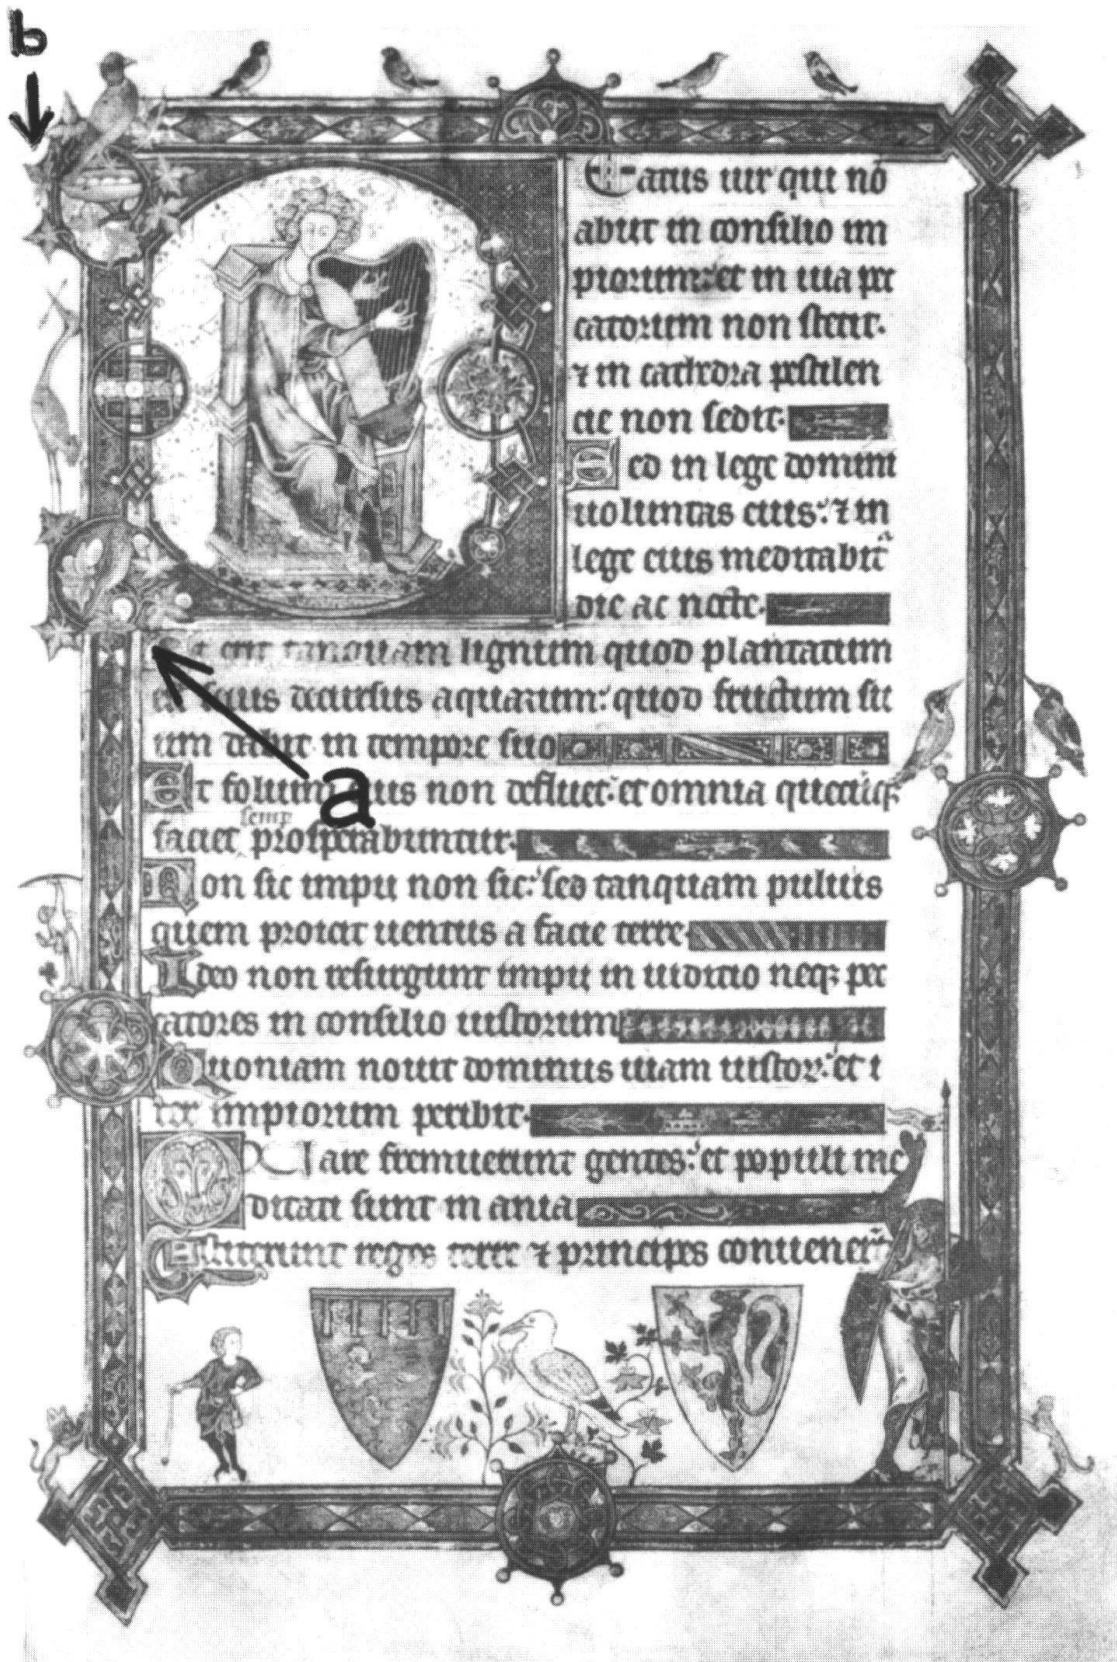 b
Eatus uir qui nō
abiit in consilio im
piorum: et in uia pec
catorum non stetit.
⁊ in cathedra pestilen
cie non sedit.
Sed in lege domini
uoluntas eius: ⁊ in
lege eius meditabit᷑
die ac nocte.
erit tanquam lignum quod plantatum
decursus aquarum: quod fructum su
um dabit in tempore suo
a
Et folium eius non defluet: et omnia quecūq;
semp
faciet prosperabuntur.
Non sic impii non sic: sed tanquam puluis
quem proicit uentus a facie terre.
Ideo non resurgunt impii in iudicio neq; pec
catores in consilio iustorum
Quoniam nouit dominus uiam iustor: et i
ter impiorum peribit.
Quare fremuerunt gentes: et populi me
ditati sunt inania
Astiterunt reges terre ⁊ principes conuener̄t